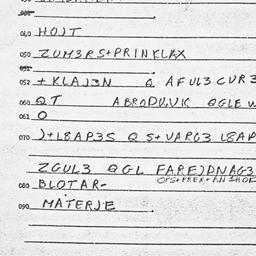 040 HOJT
050 ZUM3RS+PRINKLAX
052 + KLAJ3N Q AFUL3 CUR3
060 QT ABRODU,UK QGLE W
061 O
070 J+L8AP3S Q S+VARG3 L8AP
ZGUL3 QGL FARE)DNAG3
OPS+PREX+AN SHOR
080 BLOTAR-
090 MATERJE